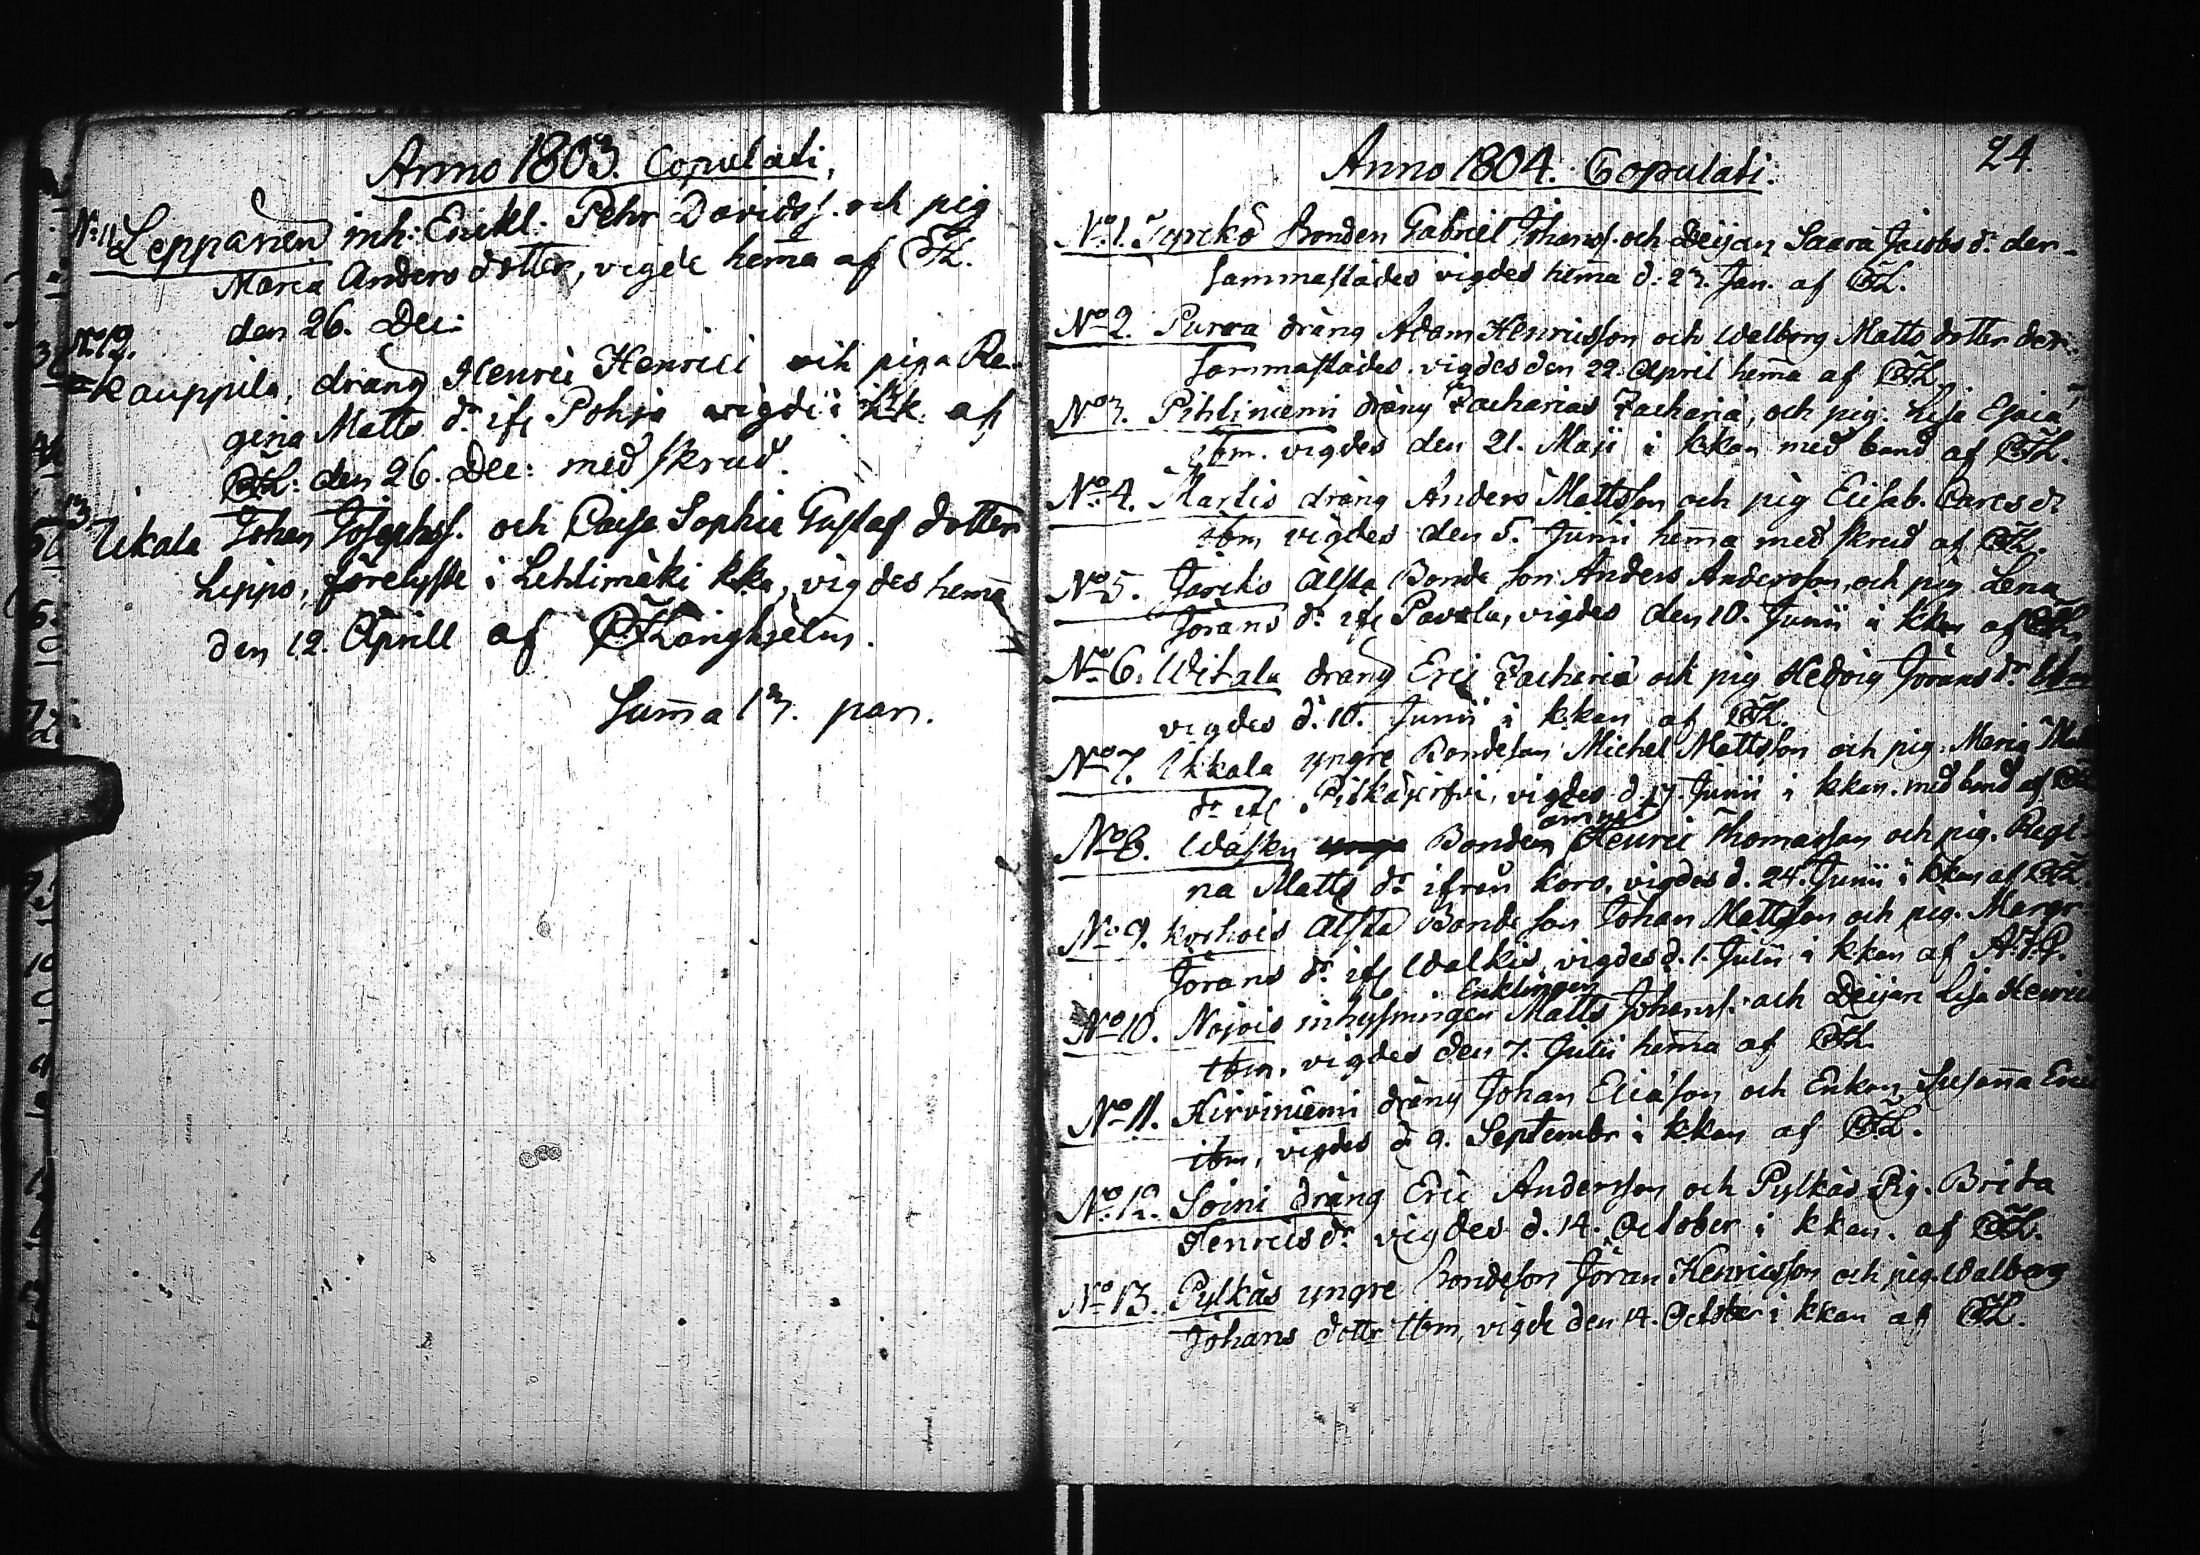 Anno 1803. Copulati.
No 11 Leppänen inh: Enkl: Pehr Davidss. och pig
Maria Anders dotter, vigde hem̃a af CTL.
den 26. Dec:
No 12.
Kauppila, dräng Henric Henrici och piga Re-
gina Matts dr ifr Pohja vigde i kk. af
CTL: den 26. Dec: med skrud.
13
Ukala Johan Josephss. och Caisa Sophia Gustaf dotter
Lippo, förelyste i Lehtimäki kka, vigdes hem̃a
den 12. April af
Sum̃a 13. par.
Anno 1804. Copulati.
24.
No 1. Jyrckö Bonden Gabriel Johanss. och Deijan Saara Jacobs dr der-
sammastädes vigdes hem̃a d. 23. Jan. af CTL.
No 2. Purra dräng Adam Henricsson och Walborg Matts dotter der-
sammastädes. vigdes den 22. April hem̃a af CTL
No 3. Pihliniemi dräng Zacharias Zachariä, och pig. Lisa Esaiä
ibm. vigdes den 21. Maji i kkan med band af CTL.
No 4. Martis dräng Anders Mattsson och pig Elisab. Carls dr
ibm vigdes den 5. Junii hem̃a med skrud af CTL.
No 5. Järiks älsta Bonde son Anders Andersson, och pig Lena
Jörans dr ifr Pavola, vigdes den 10. Junii i kkan af CTL
No 6. Witala dräng Eric Zachariä och pig Hedvig Jörans dr ibm
vigdes d. 10. Junii i kkan af CTL.
No 7. Ukkala yngre Bondeson Michel Mattsson och pig. Maria
dr ifr Pitkäjerfvi, vigdes d. 17. Junii i kkan. med band af
No 8. Wasku Bonden Henric Thomasson och pig. Regi-
na Matts dr ifrån Koro, vigdes d. 24. Junii i kkan af CTL.
No 9. Korhois älsta Bonde son Johan Mattsson och pig. Margr.
Jörans dr ifr Walkis, vigdes d. 1. Julii i kkan af
Enklingen
No 10. Nojois inhysningen Matts Johanss. och Deijan Lisa Henrics
ibm, vigdes den 7. Julii hem̃a af CTL.
No 11. Hirviniemi dräng Johan Eliäson och Enkan Susan̄a Erics
ibm, vigdes d. 9. Septembr i kkan af CTL.
No 12. Soini dräng Eric Andersson och Pylkäs Pig. Brita
Henrics dr vigdes d. 14. October i kkan. af CTL.
No 13. Pylkäs yngre Bondeson Jöran Henricsson och pig. Walborg
Johans dottr ibm, vigde den 14. October i kkan af CTL.